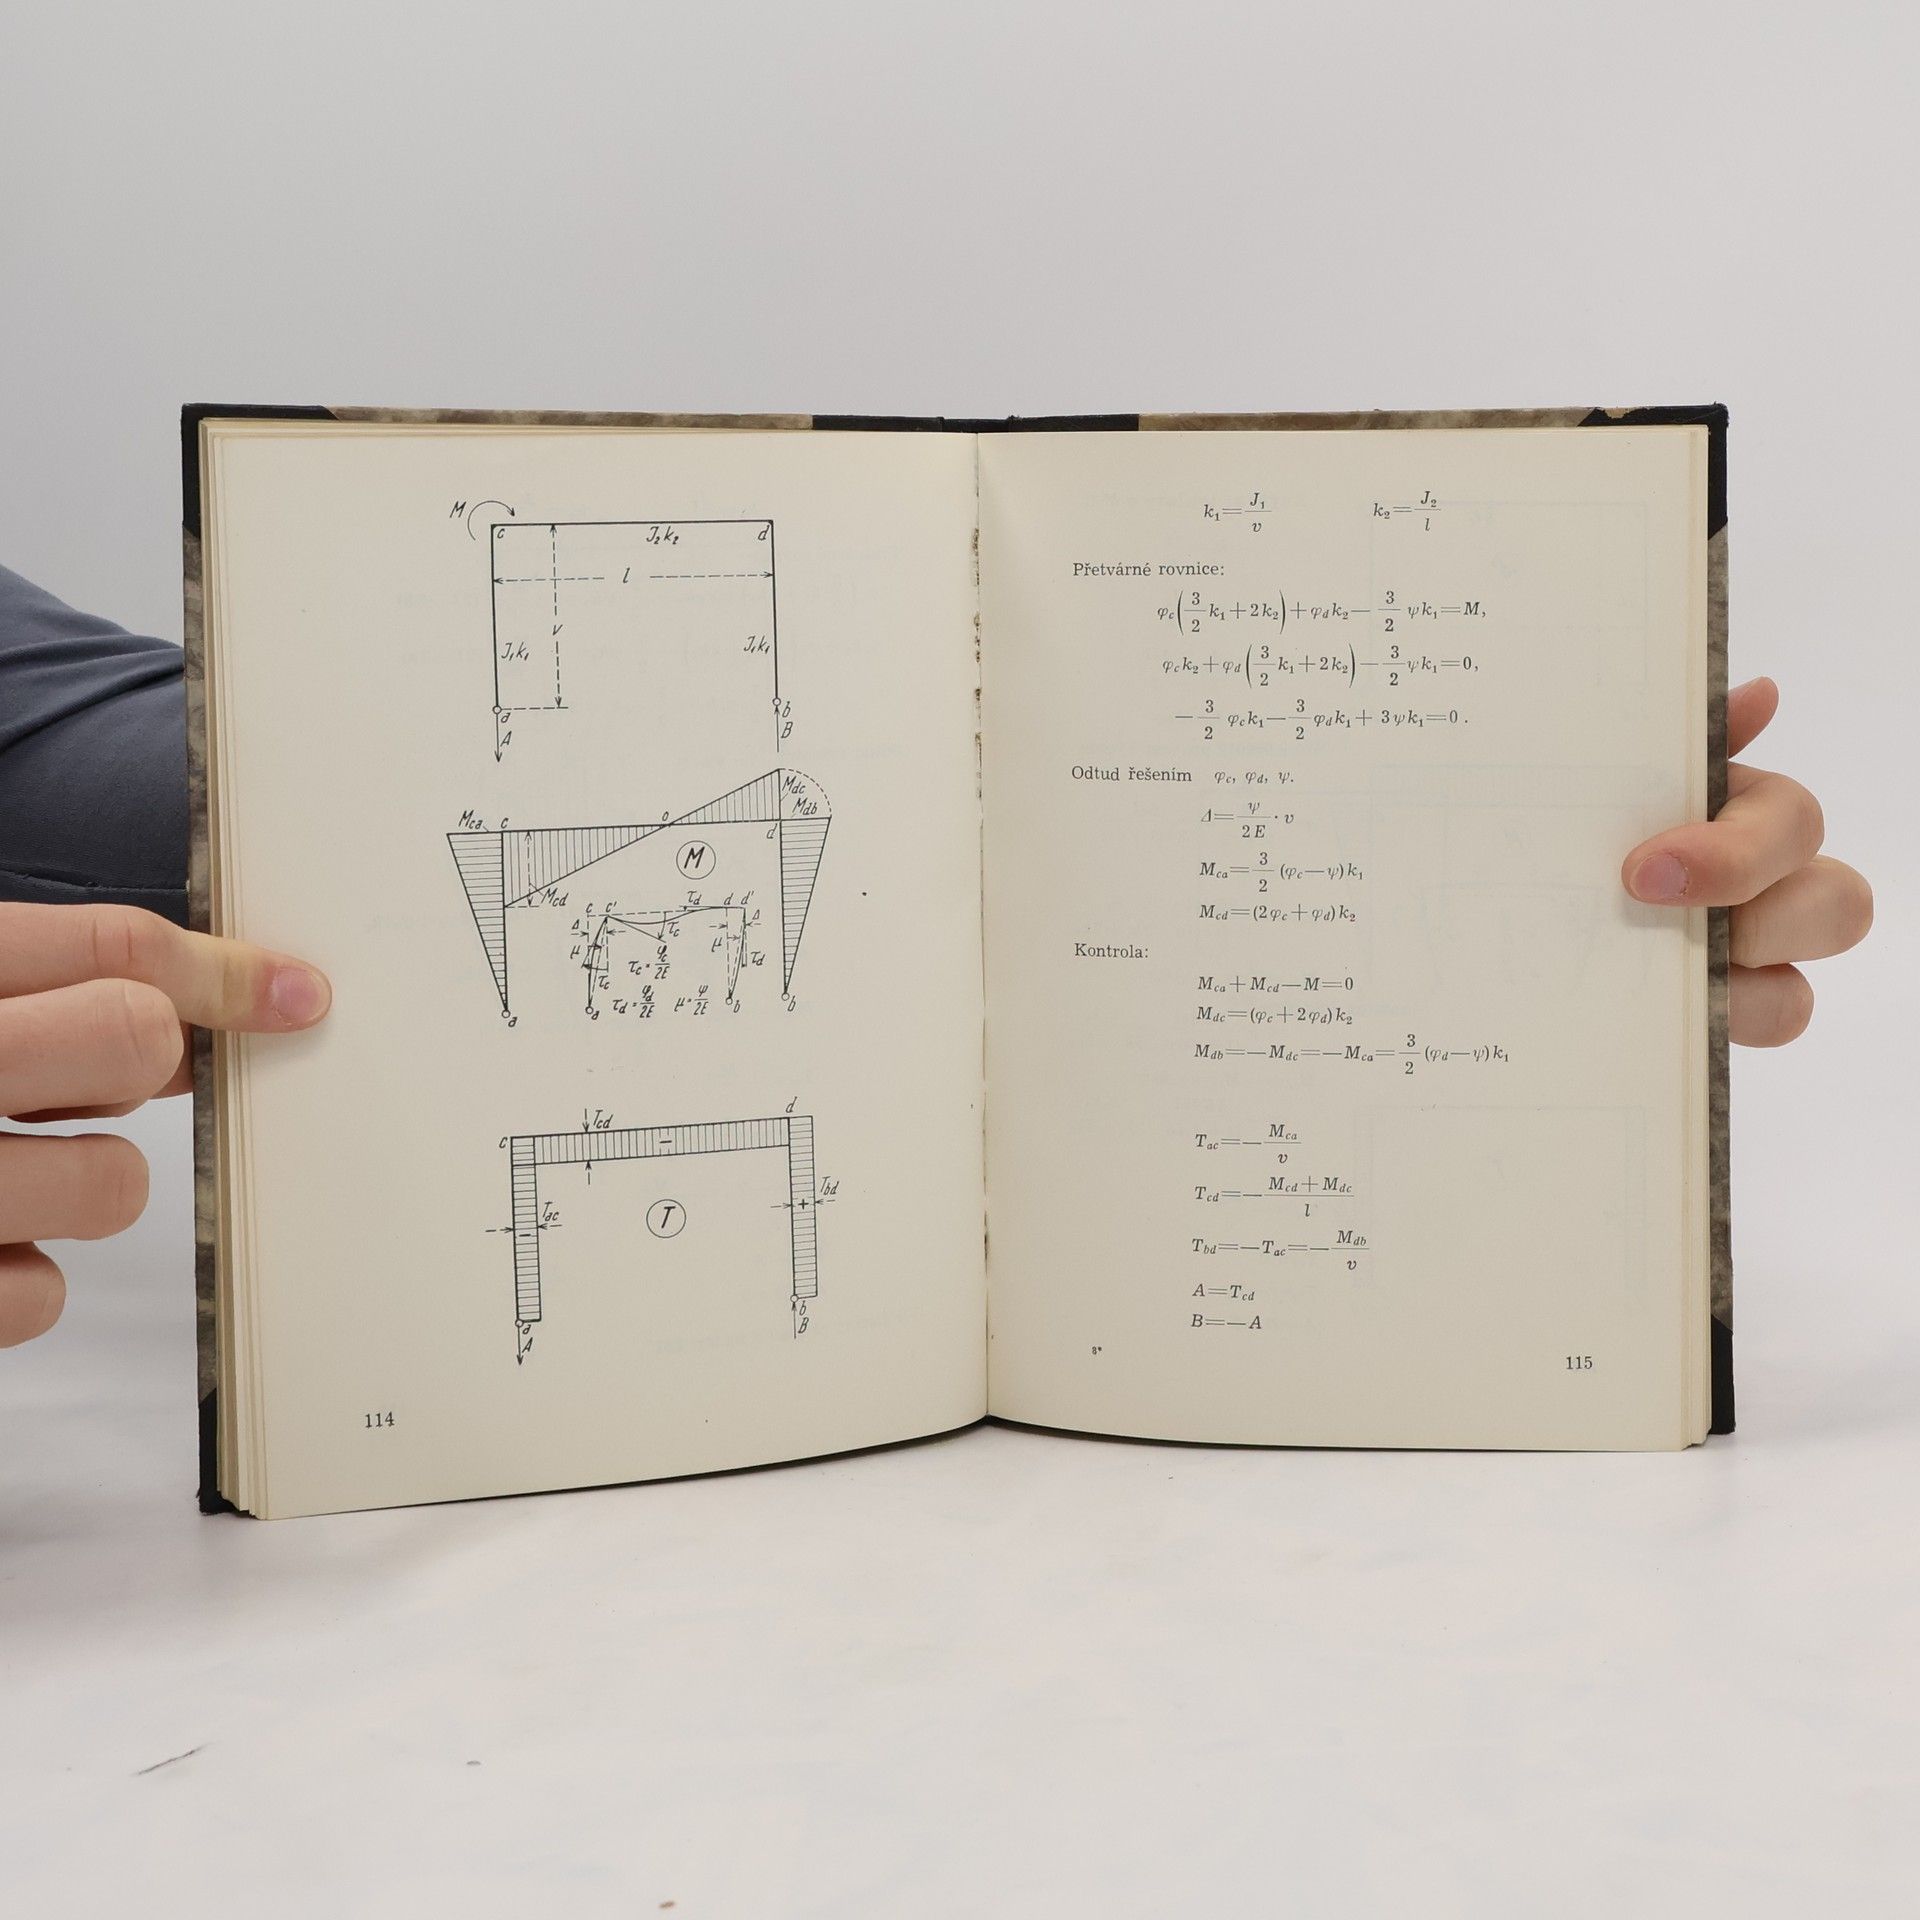 M
c
J₂k₂
d
l
v
J₁k₁
J₁k₁
a
b
A
B
Mdc
Mca
c
o
Mdb
d
M
Mcd
c c' τd d d'
Δ
Δ
τc
μ
μ
τc = φc/2E
τd
τc
τd = φd/2E μ = ψ/2E
a
a
b
b
Tcd
d
c
−
Tbd
+
Tac
−
T
b
B
a
A
114
k₁ = J₁/v k₂ = J₂/l
Přetvárné rovnice:
φc(3/2 k₁ + 2k₂) + φd k₂ − 3/2 ψk₁ = M,
φc k₂ + φd(3/2 k₁ + 2k₂) − 3/2 ψk₁ = 0,
− 3/2 φc k₁ − 3/2 φd k₁ + 3ψk₁ = 0.
Odtud řešením φc, φd, ψ.
Δ = ψ/2E · v
Mca = 3/2 (φc − ψ) k₁
Mcd = (2φc + φd) k₂
Kontrola:
Mca + Mcd − M = 0
Mdc = (φc + 2φd) k₂
Mdb = − Mdc = − Mca = 3/2 (φd − ψ) k₁
Tac = − Mca/v
Tcd = − (Mcd + Mdc)/l
Tbd = − Tac = − Mdb/v
A = Tcd
B = − A
8*
115